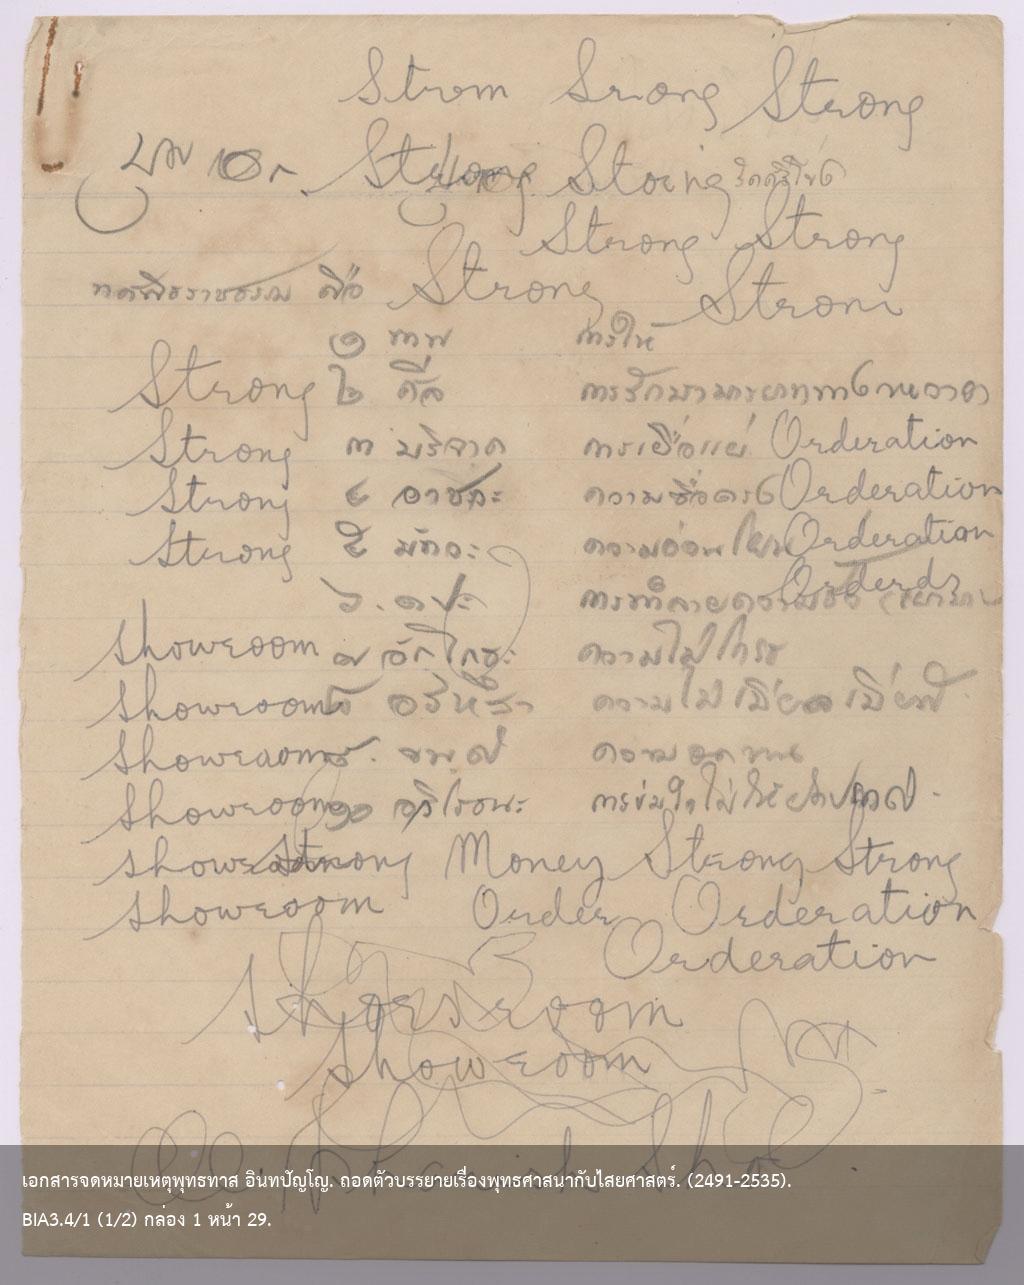 Strom Srong Strong
Strong Stoing
Strong Strong
ทศพิธราชธรรม คือ Strong Strom
๑ ทาน การให้
Strong ๒ ศีล การรักษามารยาททางกายวาจา
Strong ๓ บริจาค การเผื่อแผ่ Orderation
Strong ๔ อาชวะ ความซื่อตรง Orderation
Strong ๕ มัทวะ ความอ่อนโยน Orderation
๖. ตปะ การทำลายความชั่ว Orderds
showroom ๗ อักโกธะ ความไม่โกรธ
showroom ๘ อวิหิงสา ความไม่เบียดเบียน
showroom ๙. ขันติ ความอดทน
showroom ๑๐ อวิโรธนะ การข่มใจไม่ให้
showroom Strong Money Strong Strong
showroom Order Orderation
Orderation
showroom
showroom
เอกสารจดหมายเหตุพุทธทาส อินทปัญโญ. ถอดตัวบรรยายเรื่องพุทธศาสนากับไสยศาสตร์. (2491-2535).
BIA3.4/1 (1/2) กล่อง 1 หน้า 29.